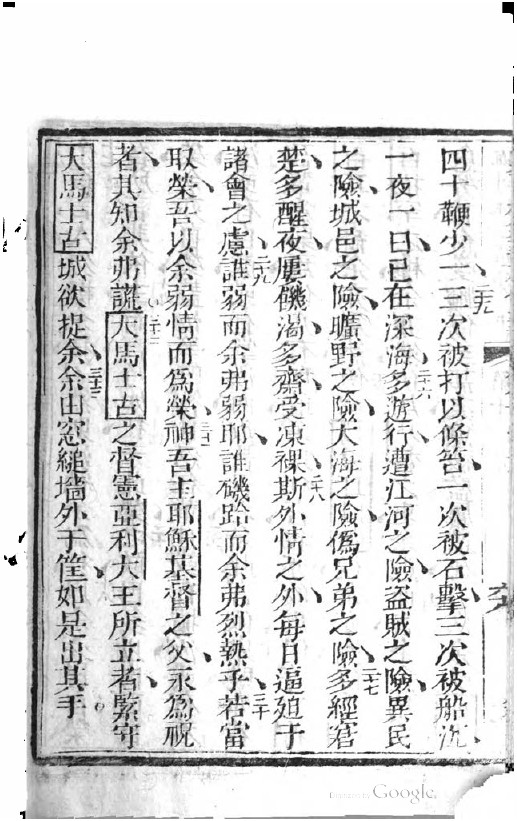 四十鞭少一三次被打以條笞一次被石擊三次被船沉
一夜一日已在深海二十六多遊行遭江河之險盜賊之險異民
之險城邑之險曠野之險大海之險僞兄弟之險二十七多經窘
楚多醒夜屢饑渴多齋受凍裸二十八斯外情之外每日逼廹于
諸會之慮二十九誰弱而余弗弱耶誰磯跲而余弗烈熱乎三十若當
取榮吾以余弱情而爲榮三十一神吾主耶穌基督之父永爲祝
者其知余弗謊三十二大馬士古之督憲亞利大王所立者緊守
大馬士古城欲捉余三十三余由窓縋墻外于筐如是出其手
Digitized by Google